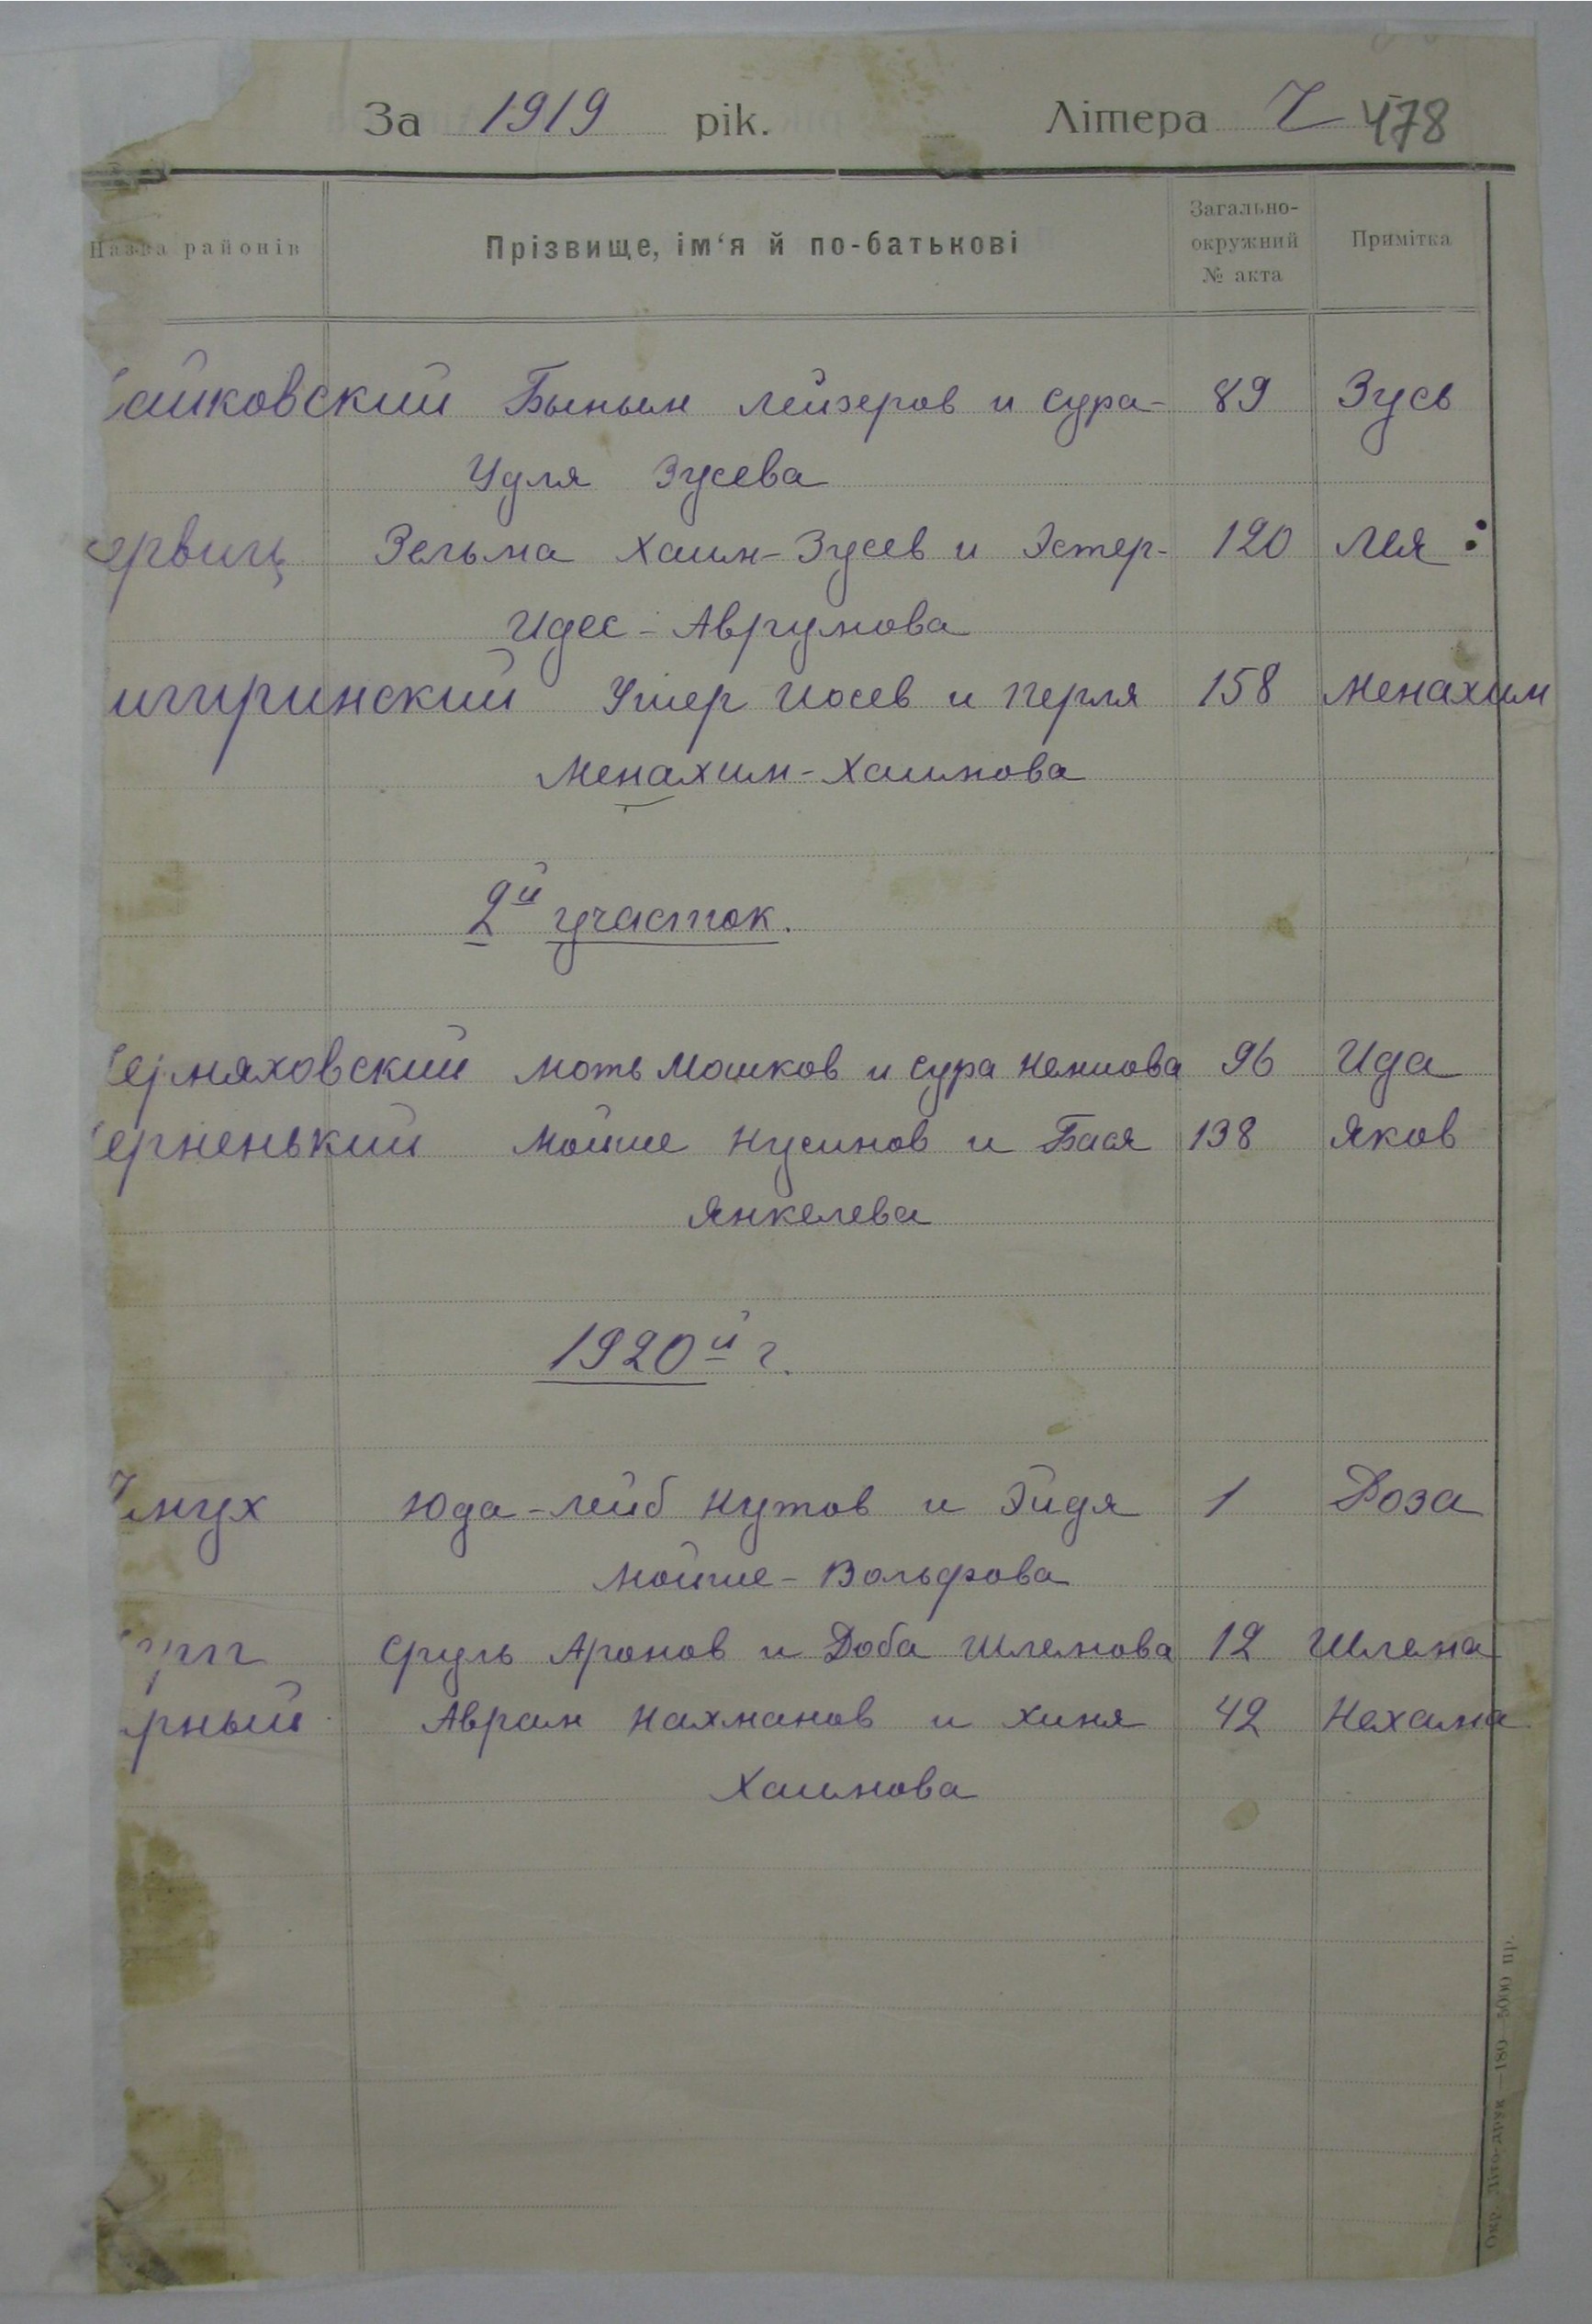 За 1919 рік. Літера Ч 478
Назва районів Прізвище, ім‘я й по-батькові Загально-окружний № акта Примітка
айковский Быньым Лейзеров и Сура- 89 Зусь
Удля Зусева
ервиц Зельма Хаим-Зусев и Эстер- 120 Лея :
Идес-Аврумова
игиринский Ушер Иосев и Перля 158 Менахим
Менахим-Хаимова
2й участок.
Черняховский Моть Мошков и Сура 96 Ида
Черненький Мойше Нусинов и Бася 138 Яков
Янкелева
1920й г.
мух Юда-Лейб Нутов и Эйдя 1 Роза
Мойше-Вольфова
Сруль Аронов и Доба Шлемова 12 Шлема
рный Аврам Нахманов и Хиня 42 Нехама
Хаимова
Окр. Літо-друк —180—5000 пр.